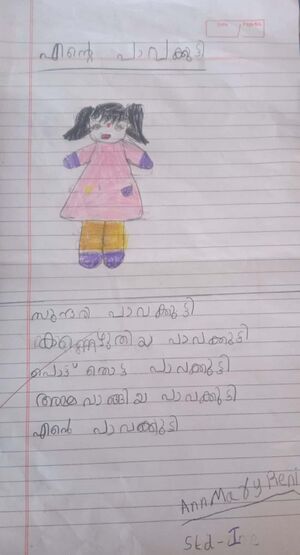 എന്റെ പാവക്കുട്ടി
സുന്ദരി പാവക്കുട്ടി
കണ്ണെഴുതിയ പാവക്കുട്ടി
പൊട്ട് തൊട്ട പാവക്കുട്ടി
അമ്മ വാങ്ങിയ പാവക്കുട്ടി
എന്റെ പാവക്കുട്ടി
AnnMary Reni
Std - I